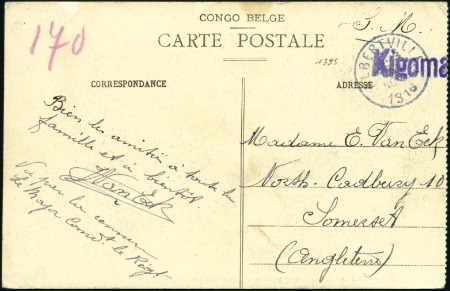 CONGO BELGE
S. M.
CARTE POSTALE
170
1395
ALBERTVILLE
1916
Kigoma
CORRESPONDANCE
ADRESSE
Bien les amitiés à toute la
famille et à bientôt.
VanEck
Vu par le censeur
Le Major Comdt le Régt
Madame E. Van Eck
North-Cadbury 10
Somerset
(Angleterre)